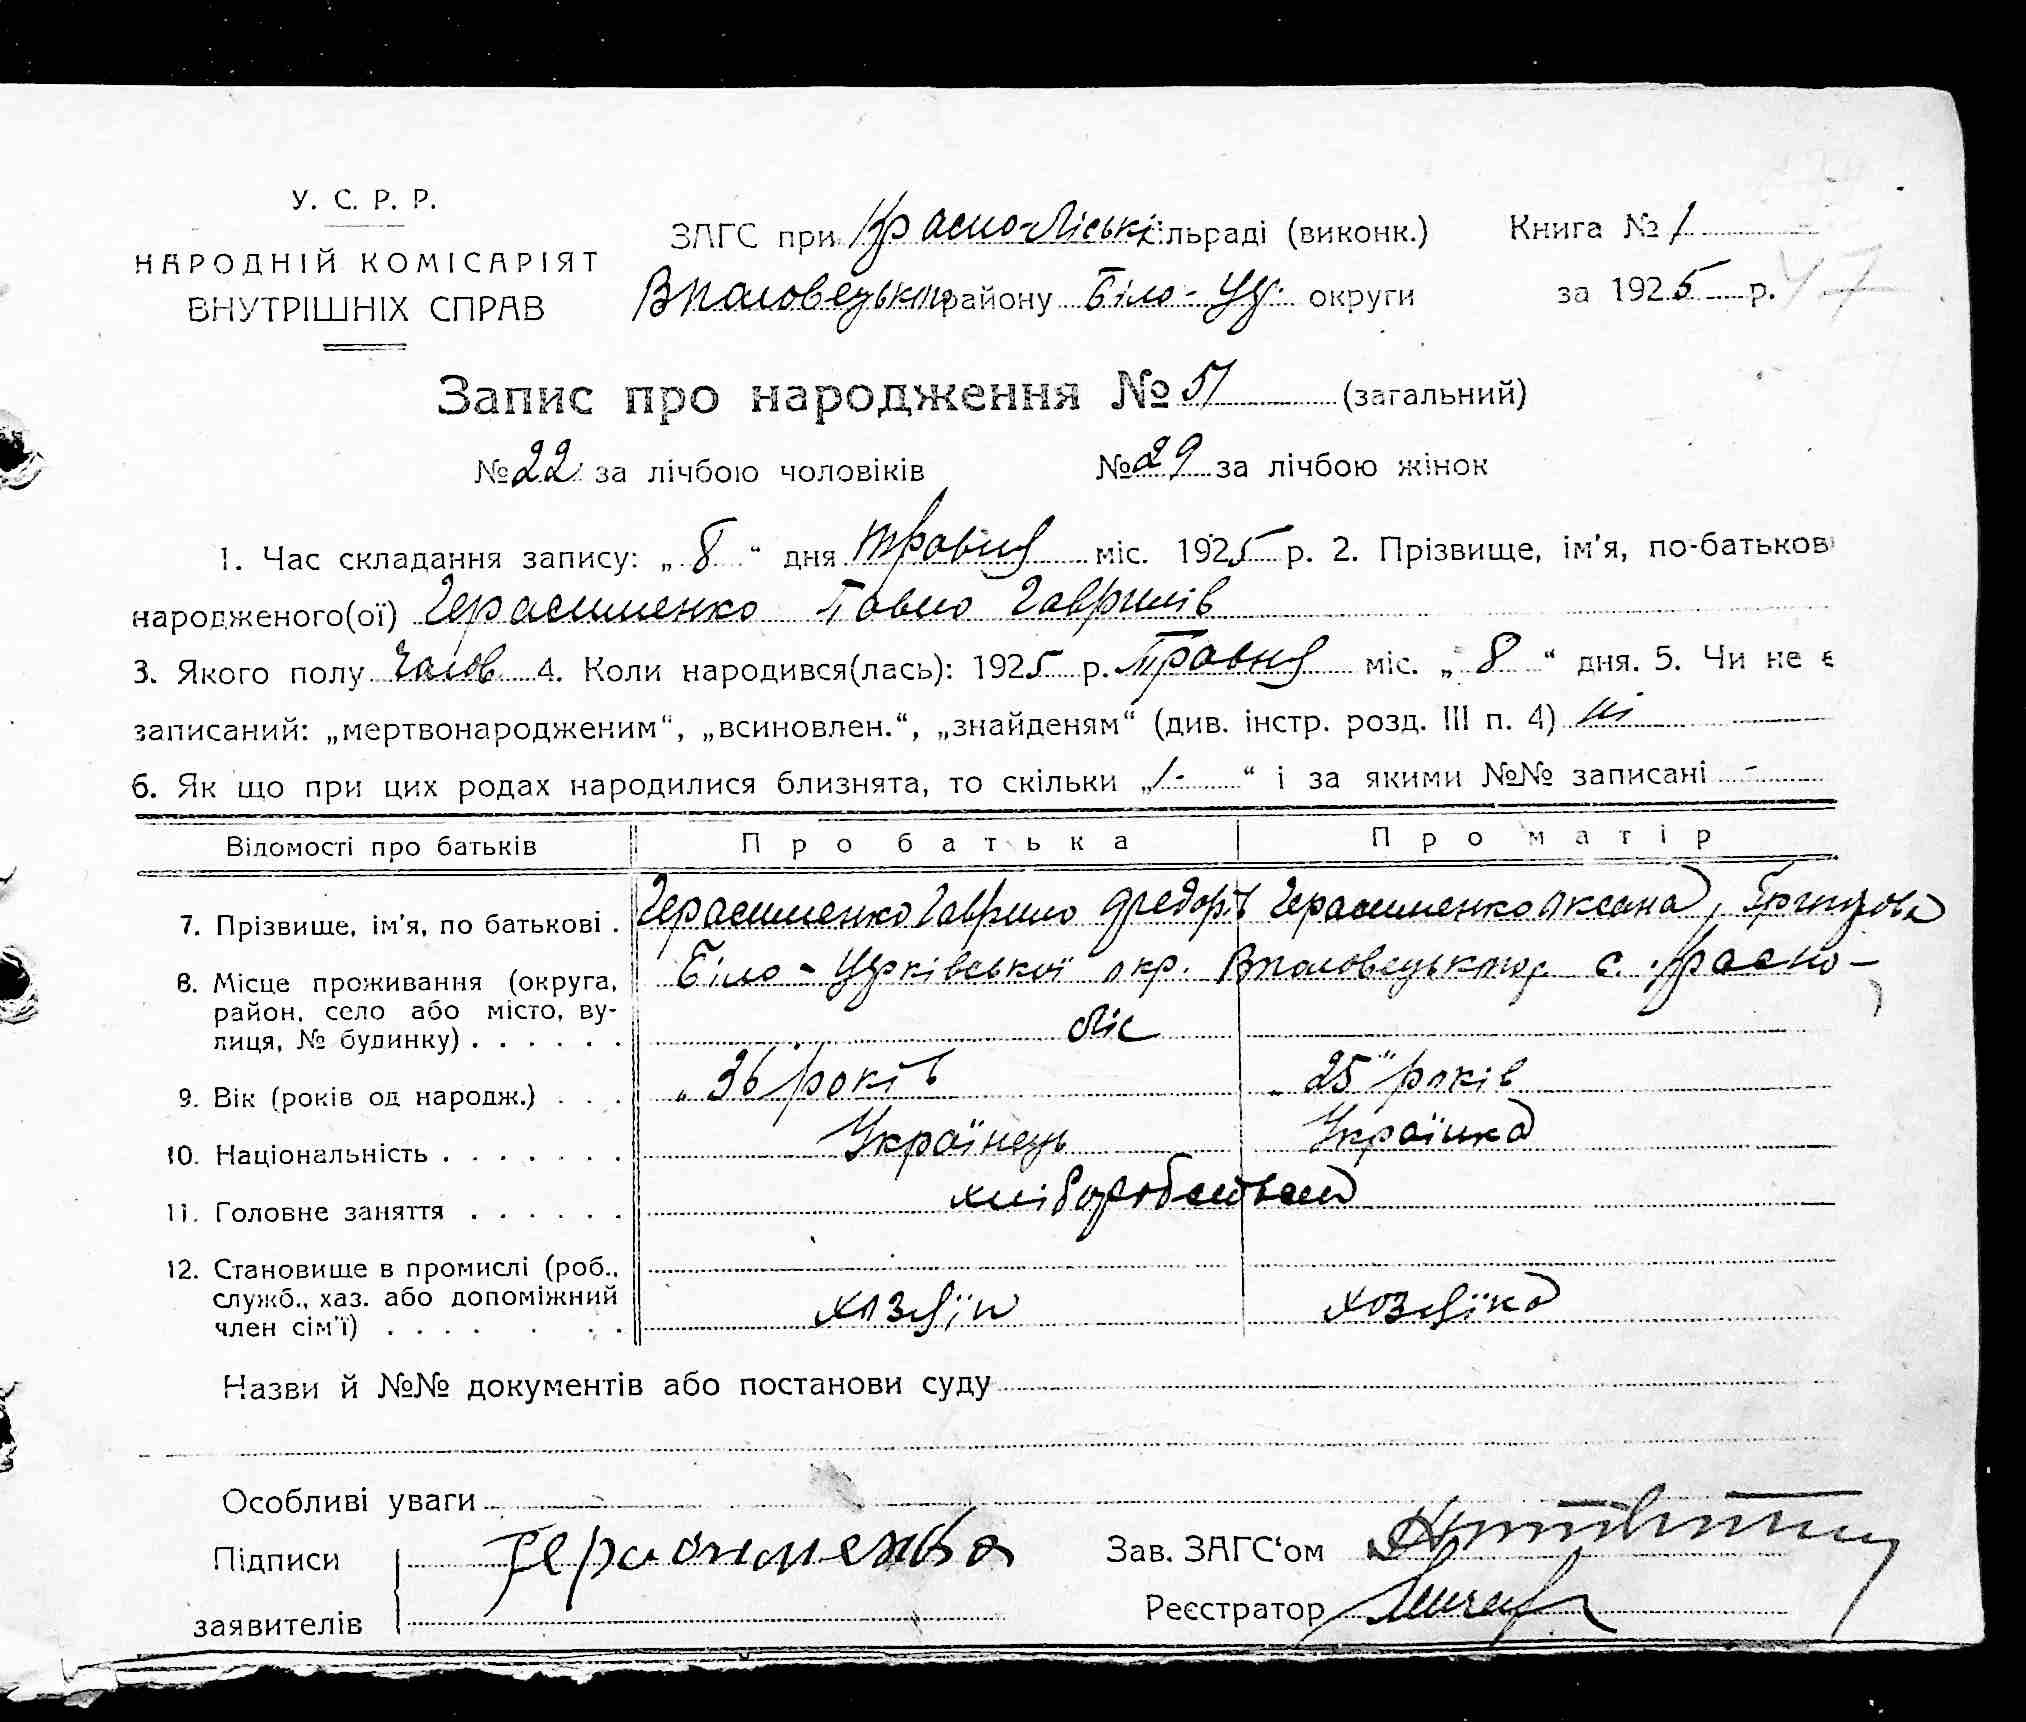 У. С. Р. Р.
НАРОДНІЙ КОМІСАРІЯТ
ВНУТРІШНІХ СПРАВ
ЗАГС при Красно-Ліській сільраді (виконк.) Книга № 1
В половецького району Біло-Цер. округи за 1925 р. 47
Запис про народження № 51 (загальний)
№ 22 за лічбою чоловіків № 29 за лічбою жінок
1. Час складання запису: „ 8 “ дня травня міс. 1925 р. 2. Прізвище, ім'я, по-батькові
народженого(ої) Герасименко Павло Гаврилів
3. Якого полу Чолов 4. Коли народився(лась): 1925 р. Травня міс. „ 8 “ дня. 5. Чи не є
записаний: „мертвонародженим“, „всиновлен.“, „знайденям“ (див. інстр. розд. III п. 4) ні
6. Як що при цих родах народилися близнята, то скільки „ 1- “ і за якими №№ записані -
Відомості про батьків Про батька Про матір
7. Прізвище, ім'я, по батькові . Герасименко Гаврило Федорів Герасименко Оксана
8. Місце проживання (округа, район, село або місто, вулиця, № будинку) . . . . . . Біло-Церківської окр. В половецького р. с. Красно-
Ліс
9. Вік (років од народж.) . . . „ 36 років „ 25 " років
10. Національність . . . . . . . Українець Українка
11. Головне заняття . . . . . . хліборобством
12. Становище в промислі (роб., служб., хаз. або допоміжний член сім'ї) . . . . . . . хозяїн хозяїка
Назви й №№ документів або постанови суду
Особливі уваги
Підписи Герасименко Зав. ЗАГС‘ом
заявителів Реєстратор